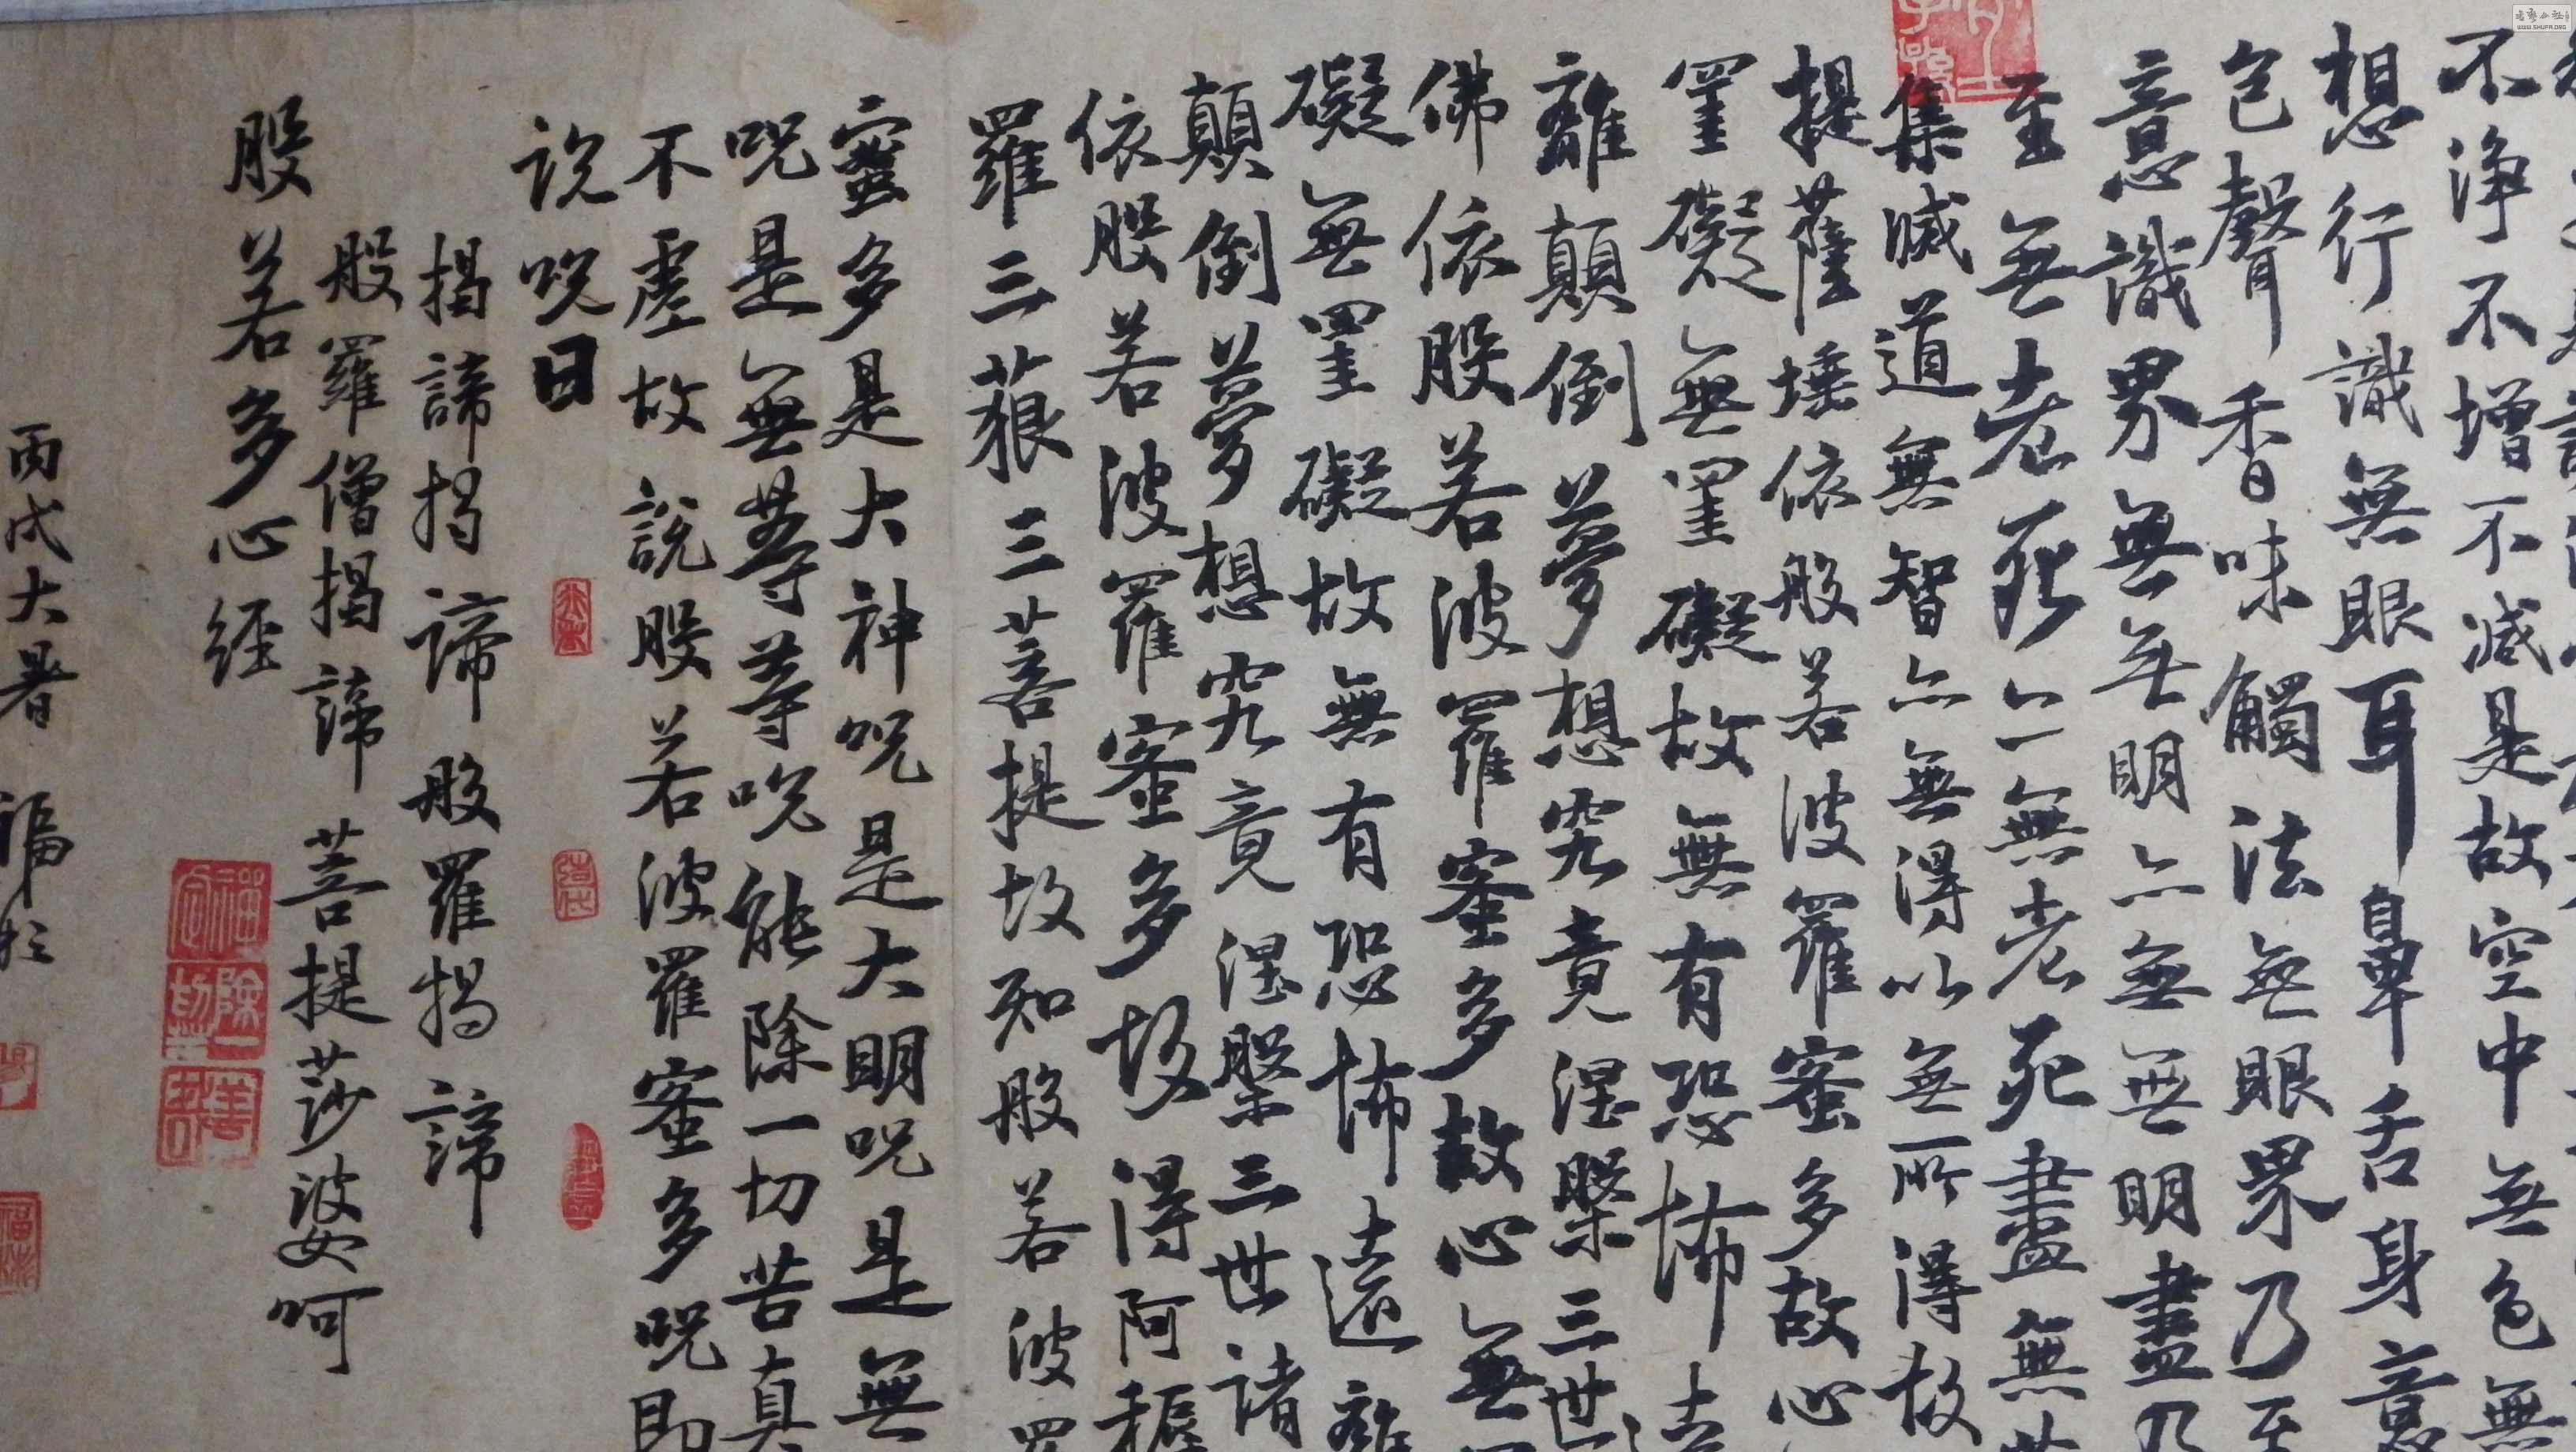 不淨不增不減是故空中無色無
想行識無眼耳鼻舌身意
色聲香味觸法無眼界乃至
意識界無無明亦無無明盡乃
至無老死亦無老死盡無苦
集滅道無智亦無得以無所得故
提薩埵依般若波羅蜜多故心
罣礙無罣礙故無有恐怖遠
離顛倒夢想究竟涅槃三世
佛依般若波羅蜜多故心無罣
礙無罣礙故無有恐怖遠離
顛倒夢想究竟涅槃三世諸
依般若波羅蜜多故得阿耨
羅三藐三菩提故知般若波羅
蜜多是大神咒是大明咒是無
咒是無等等咒能除一切苦真
不虛故說般若波羅蜜多咒即
説咒曰
揭諦揭諦般羅揭諦
般羅僧揭諦菩提莎婆呵
般若多心経
丙戌大暑福於
WWW.SHUFA.ORG